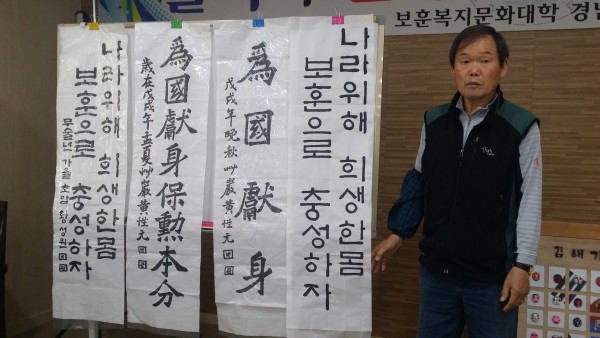 보훈복지문화대학 경남
나라위해 희생한몸
보훈으로 충성하자
爲國獻身
戊戌年晩秋艸巖黃性元
爲國獻身保勲本分
歲在戊戌年孟夏艸巖黃性元
나라위해 희생한몸
보훈으로 충성하자
무술년 가을 초암 황성원
김해